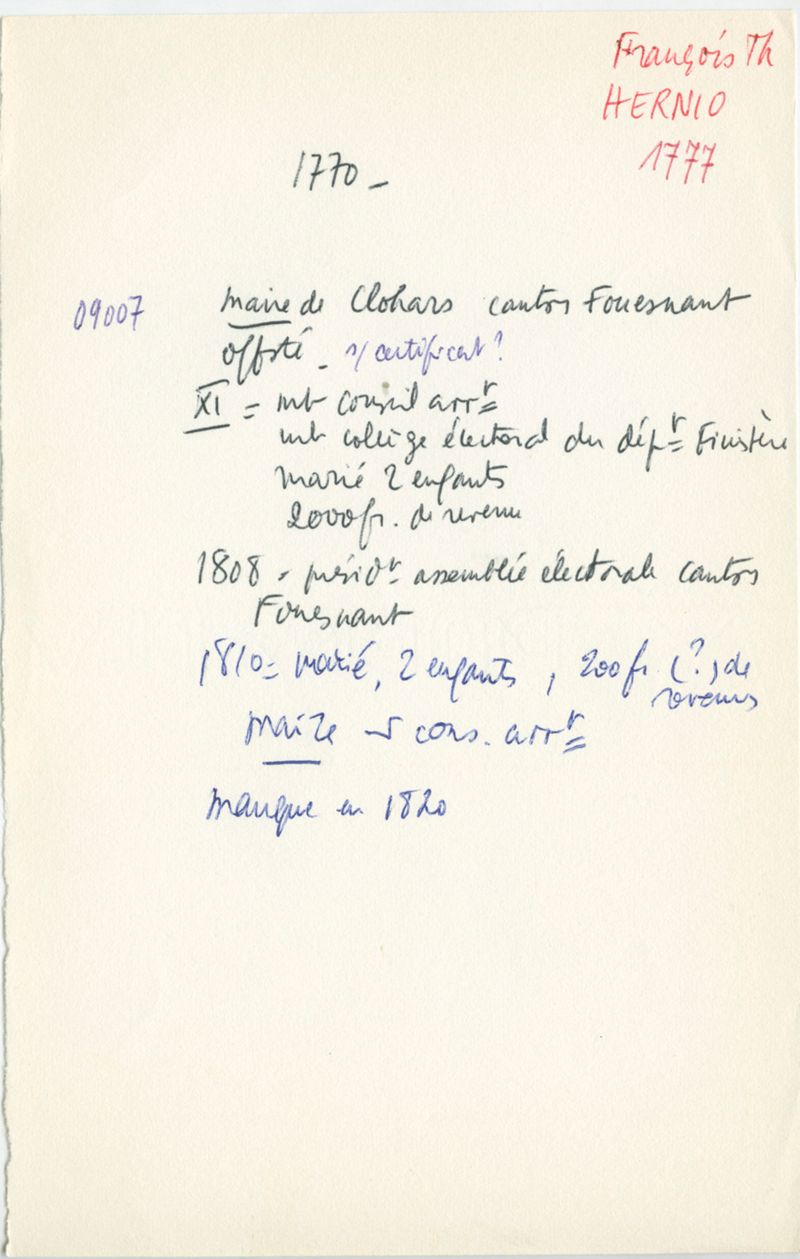 François Th
HERNIO
1777
1770 -
09007 Maire de Clohars canton Fouesnant
offsté - s/ certificat ?
XI = mb conseil arrt
mb collège électoral du dépt Finistère
marié 2 enfants
2000 fr. de revenu
1808 - présidt assemblée électorale canton
Fouesnant
1810 = marié, 2 enfants, 200 fr (?) de
revenus
Maire cons. arrt
manque en 1820